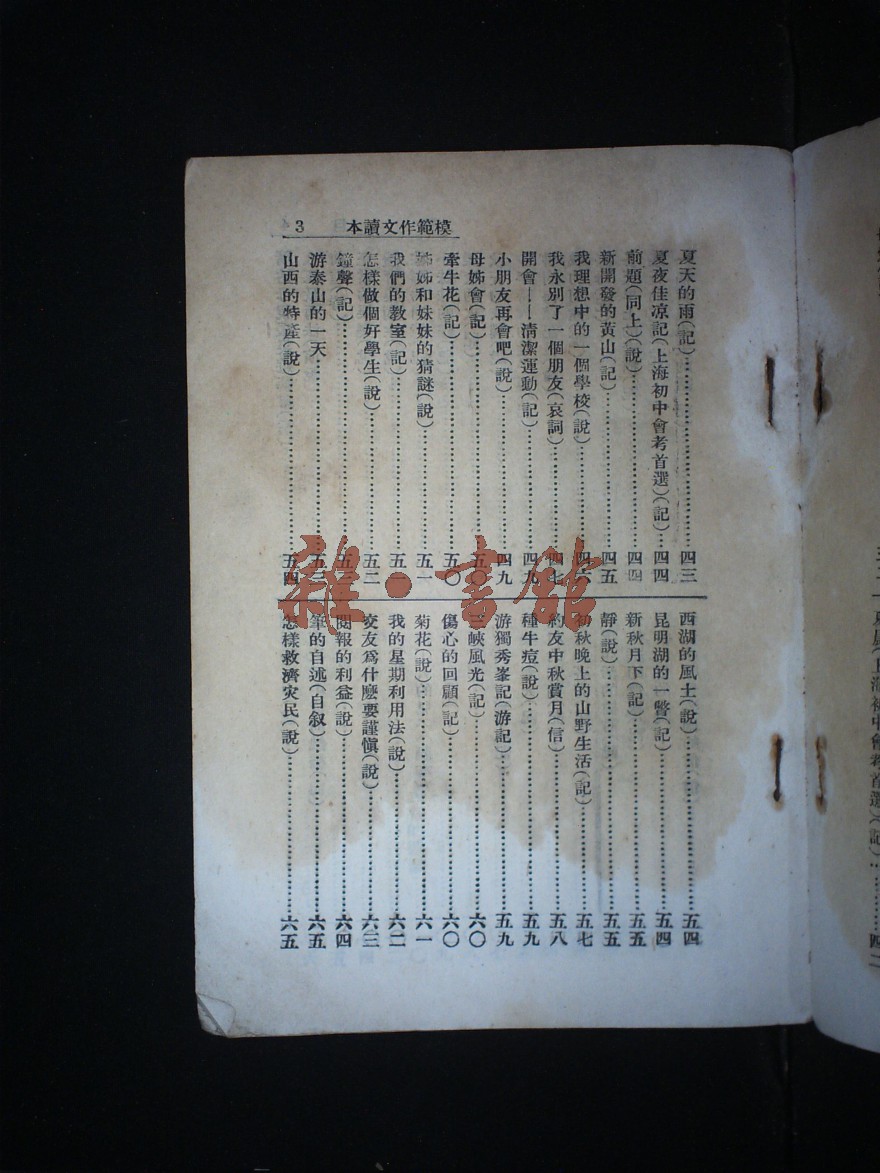 模範作文讀本　3
夏天的雨(記)……四三
夏夜佳凉記(上海初中會考首選)(記)……四四
前題(同上)(說)……四四
新開發的黃山(記)……四五
我理想中的一個學校(說)……四六
我永別了一個朋友(哀詞)……四七
開會——清潔運動(記)……四九
小朋友再會吧(說)……四九
母姊會(記)……五〇
牽牛花(記)……五〇
姊姊和妹妹的猜謎(說)……五一
我們的教室(記)……五一
怎樣做個好學生(說)……五二
鐘聲(記)……五
游泰山的一天……五三
山西的特產(說)……五四
西湖的風土(說)……五四
昆明湖的一瞥(記)……五四
新秋月下(記)……五五
靜(說)……五五
初秋晚上的山野生活(記)……五七
約友中秋賞月(信)……五八
種牛痘(說)……五九
游獨秀峯記(游記)……五九
三峽風光(記)……六〇
傷心的回顧(記)……六〇
菊花(說)……六一
我的星期利用法(說)……六二
交友爲什麽要謹慎(說)……六三
閱報的利益(說)……六四
筆的自述(自叙)……六五
怎樣救濟灾民(說)……六五
雜·書館